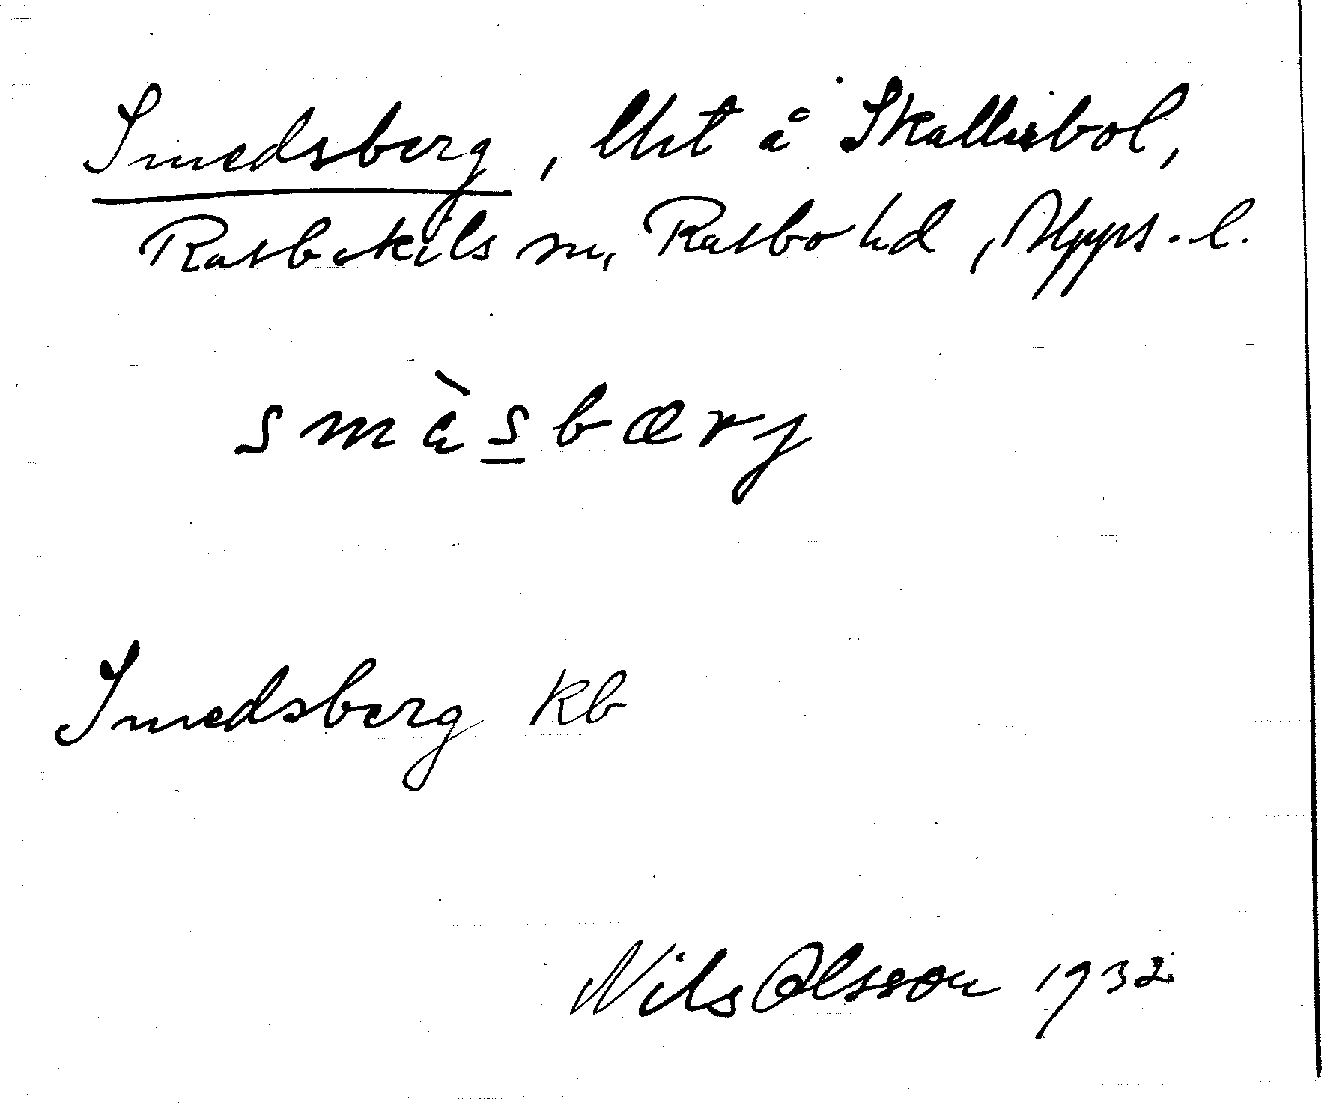 Smedsberg, lht å Skallisbol,
Rasbokils sn, Rasbo hd, Upps. l.
smèsbærj
Smedsberg kb
Nils Olsson 1932